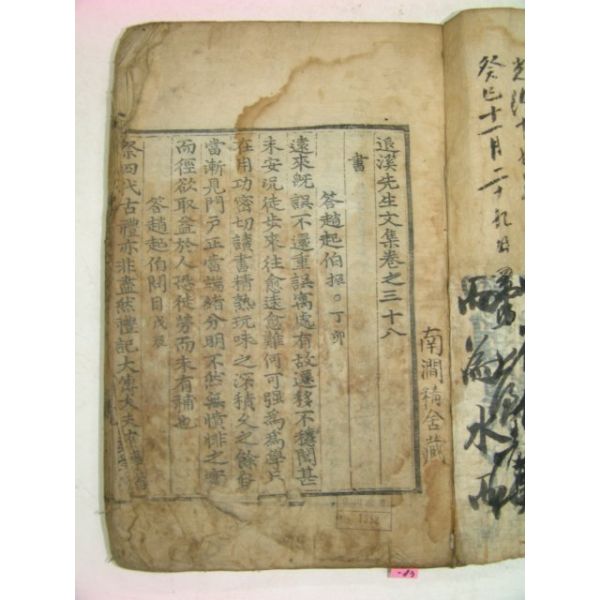 癸巳十一月二十九日
爲水
南澗精舍藏
退溪先生文集卷之三十八
書
答趙起伯振○丁卯
遠來旣誤不還重誤寓處有故遷移不穩聞甚
未安況徒步來往愈遠愈難何可强爲爲學只
在用功密切讀書精熟玩味之深積久之餘自
當漸見門戶正當端緖分明不然無憤悱之實
而徑欲取益於人恐徒勞而未有補也
答趙起伯問目戊辰
祭四代古禮亦非盡然禮記大傳大夫